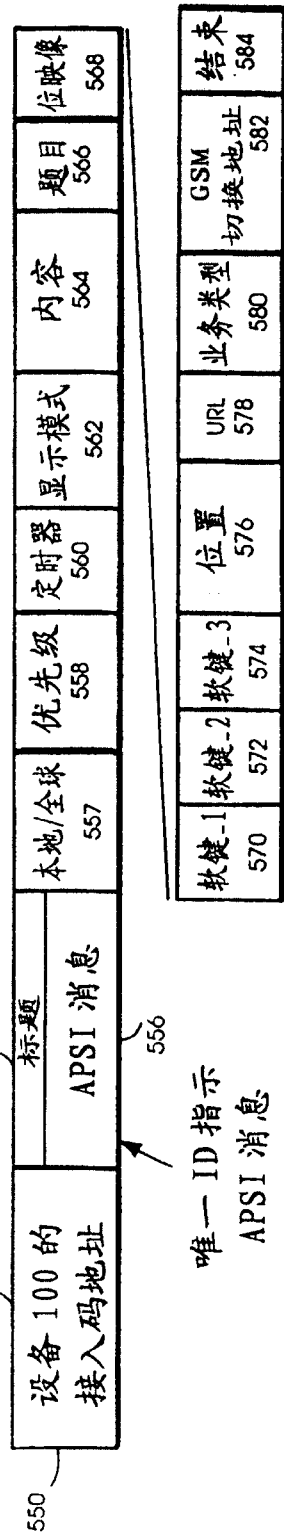 550
设备 100 的
接入码地址
标题
APSI 消息
556
唯一 ID 指示
APSI 消息
本地/全球
557
优先级
558
定时器
560
显示模式
562
内容
564
题目
566
位映像
568
软键_1
570
软键_2
572
软键_3
574
位置
576
URL
578
业务类型
580
GSM
切换地址
582
结束
584